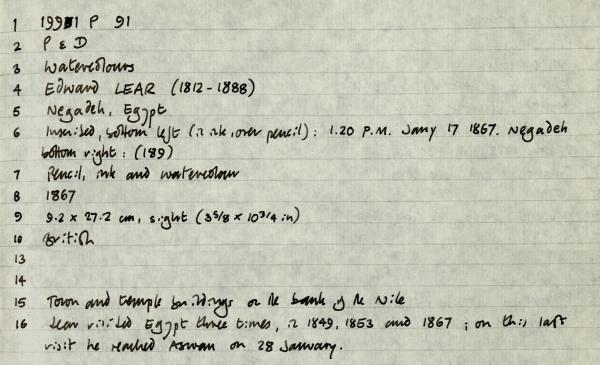 1 1991 P 91
2 P & D
3 Watercolours
4 Edward LEAR (1812-1888)
5 Negadeh, Egypt
6 Inscribed, bottom left (in ink, over pencil): 1.20 P.M. Jany 17 1867. Negadeh
bottom right: (189)
7 Pencil, ink and watercolour
8 1867
9 9.2 x 27.2 cm, sight (3 5/8 x 10 3/4 in)
10 British
13
14
15 Town and temple buildings on the bank of the Nile
16 Lear visited Egypt three times, in 1849, 1853 and 1867; on this last
visit he reached Aswan on 28 January.